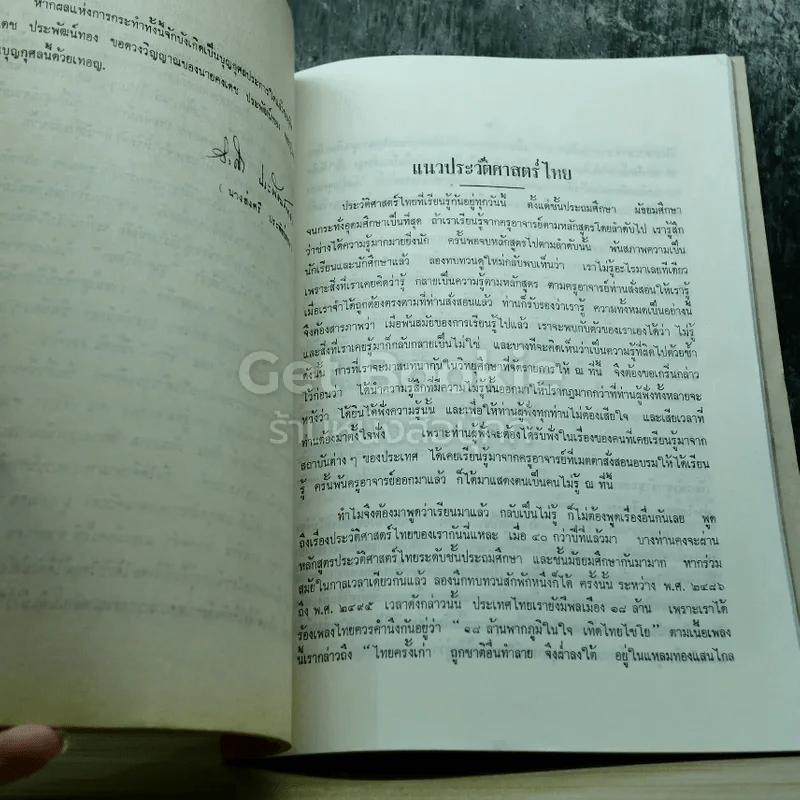 หากผลแห่งการกระทำทั้งนี้จักบังเกิดเป็นบุญกุศลประการใด
เดช ประพัฒน์ทอง ขอดวงวิญญาณของนายคงเดช ประพัฒน์ทอง
บุญกุศลนี้ด้วยเทอญ.
แนวประวัติศาสตร์ไทย
ประวัติศาสตร์ไทยที่เรียนรู้กันอยู่ทุกวันนี้ ตั้งแต่ชั้นประถมศึกษา มัธยมศึกษา
จนกระทั่งอุดมศึกษาเป็นที่สุด ถ้าเราเรียนรู้จากครูอาจารย์ตามหลักสูตรโดยลำดับไป เรารู้สึก
ว่าช่างได้ความรู้มากมายยิ่งนัก ครั้นพอจบหลักสูตรไปตามลำดับนั้น พ้นสภาพความเป็น
นักเรียนและนักศึกษาแล้ว ลองทบทวนดูใหม่กลับพบเห็นว่า เราไม่รู้อะไรมาเลยทีเดียว
เพราะสิ่งที่เราเคยคิดว่ารู้ กลายเป็นความรู้ตามหลักสูตร ตามครูอาจารย์ท่านสั่งสอนให้เรารู้
เมื่อเราจำได้ถูกต้องตรงตามที่ท่านสั่งสอนแล้ว ท่านก็รับรองว่าเรารู้ ความทั้งหมดเป็นอย่างนี้
จึงต้องสารภาพว่า เมื่อพ้นสมัยของการเรียนรู้ไปแล้ว เราจะพบกับตัวของเราเองได้ว่า ไม่รู้
และสิ่งที่เราเคยรู้มาก็กลับกลายเป็นไม่ใช่ และบางทีจะคิดเห็นว่าเป็นความรู้ที่ผิดไปด้วยซ้ำ
ดังนั้น การที่เราจะมาสนทนากันในวิทยุศึกษาที่จัดรายการให้ ณ ที่นี้ จึงต้องขอเรียนกล่าว
ไว้ก่อนว่า ได้นำความรู้สึกที่มีความไม่รู้นั้นออกมาให้ปรากฏมากกว่าที่ท่านผู้ฟังทั้งหลายจะ
หวังว่า ได้ยินได้ฟังความรู้นั้น และเพื่อให้ท่านผู้ฟังทุกท่านไม่ต้องเสียใจ และเสียเวลาที่
ท่านต้องมาตั้งใจฟัง เพราะท่านผู้ฟังจะต้องได้รับฟังในเรื่องของคนที่เคยเรียนรู้มาจาก
สถาบันต่าง ๆ ของประเทศ ได้เคยเรียนรู้มาจากครูอาจารย์ที่เมตตาสั่งสอนอบรมให้ได้เรียน
รู้ ครั้นพ้นครูอาจารย์ออกมาแล้ว ก็ได้มาแสดงตนเป็นคนไม่รู้ ณ ที่นี้
ทำไมจึงต้องมาพูดว่าเรียนมาแล้ว กลับเป็นไม่รู้ ก็ไม่ต้องพูดเรื่องอื่นกันเลย พูด
ถึงเรื่องประวัติศาสตร์ไทยของเรากันนี่แหละ เมื่อ ๔๐ กว่าปีที่แล้วมา บางท่านคงจะผ่าน
หลักสูตรประวัติศาสตร์ไทยระดับชั้นประถมศึกษา และชั้นมัธยมศึกษากันมามาก หากร่วม
สมัยในกาลเวลาเดียวกันแล้ว ลองนึกทบทวนสักพักหนึ่งก็ได้ ครั้งนั้น ระหว่าง พ.ศ. ๒๔๘๖
ถึง พ.ศ. ๒๔๙๕ เวลาดังกล่าวนั้น ประเทศไทยเรายังมีพลเมือง ๑๘ ล้าน เพราะเราได้
ร้องเพลงไทยควรคำนึงกันอยู่ว่า “ ๑๘ ล้านพากภูมิในใจ เทิดไทยไชโย ” ตามเนื้อเพลง
นี้เรากล่าวถึง “ ไทยครั้งเก่า ถูกชาติอื่นทำลาย จึงฝ่าลงใต้ อยู่ในแหลมทองแสนไกล